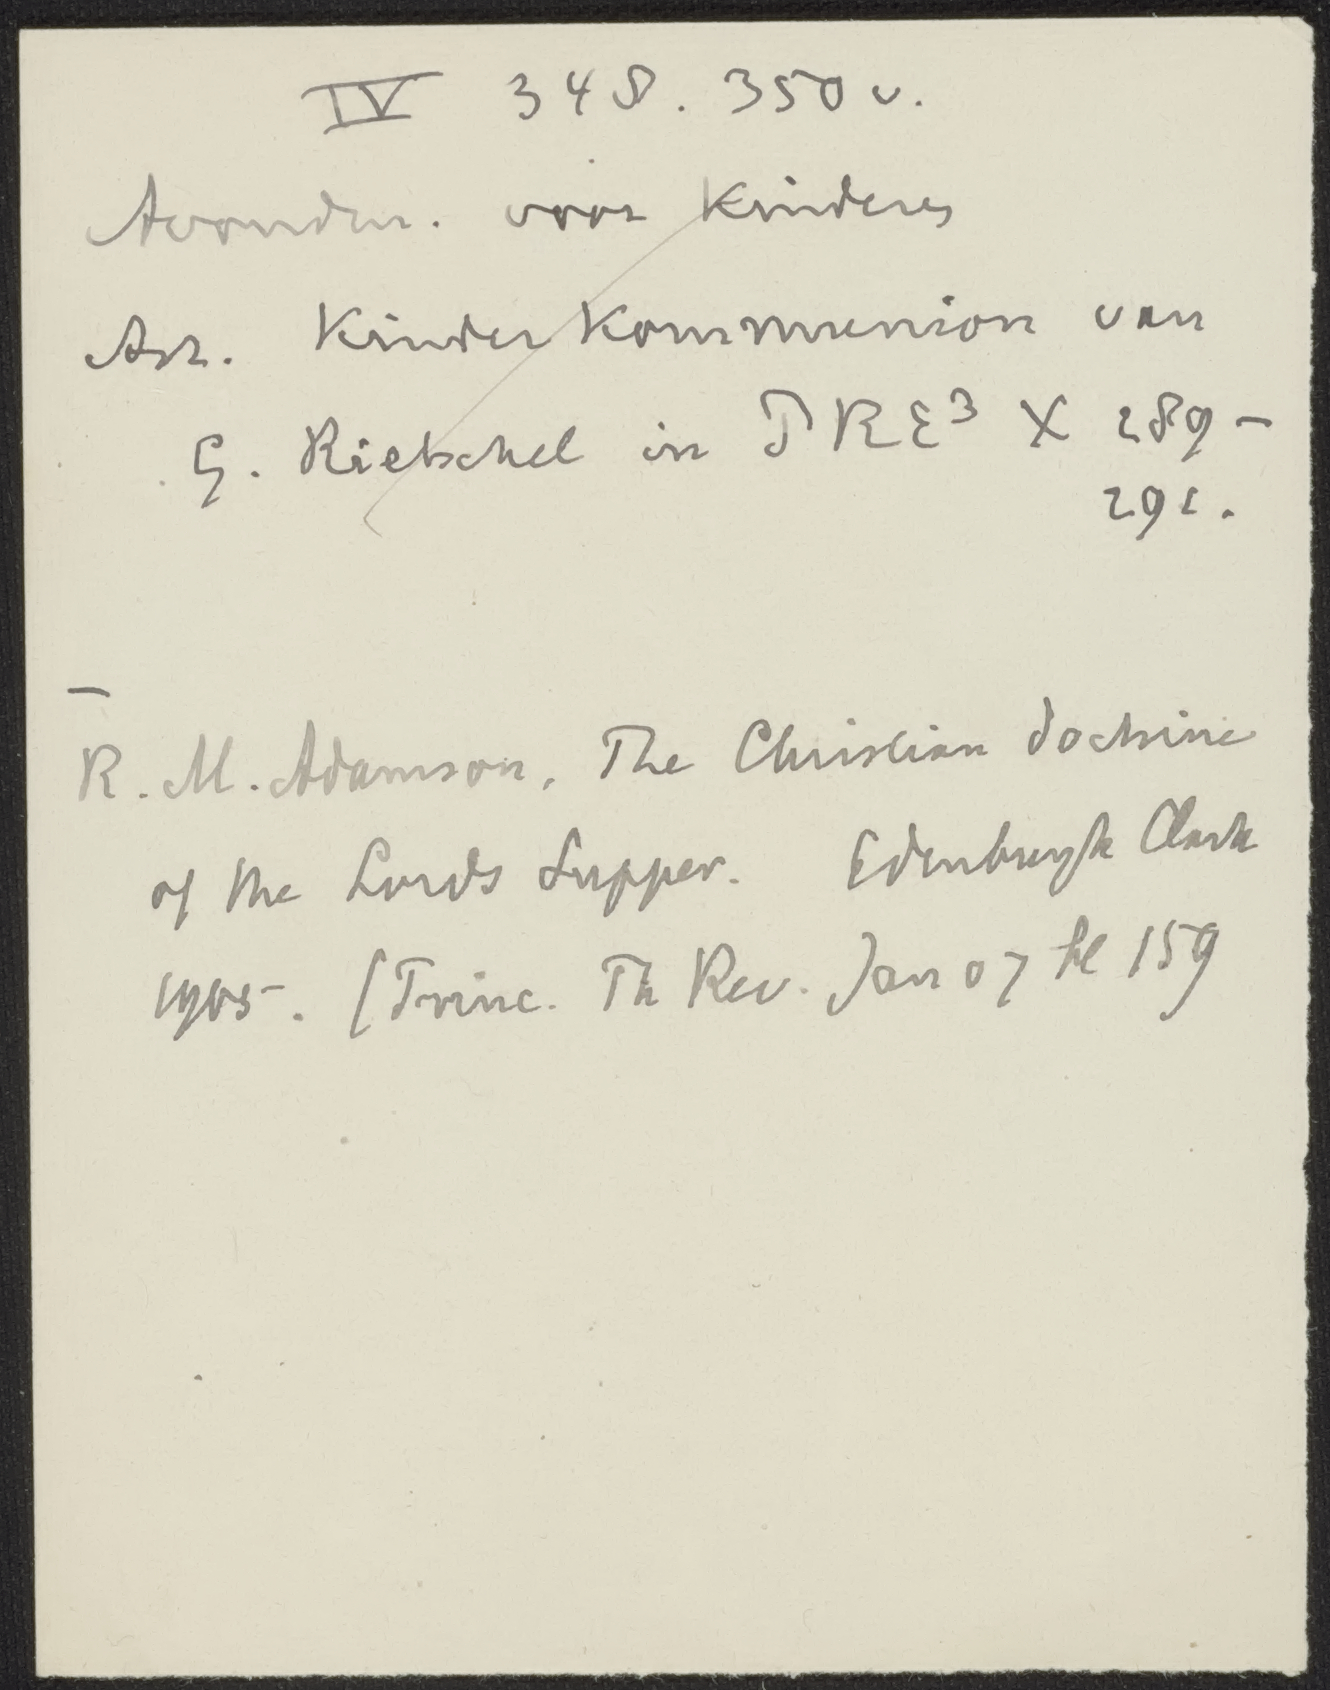 IV 348. 350 v.
Avondm. voor Kinderen
Art. Kinderkommunion van
G. Rietschel in PRE³ X 289-
291.
—
R. M. Adamson, The Christian doctrine
of the Lords Supper. Edinburgh Clark
1905. [Princ. Th Rev. Jan 07 bl 159